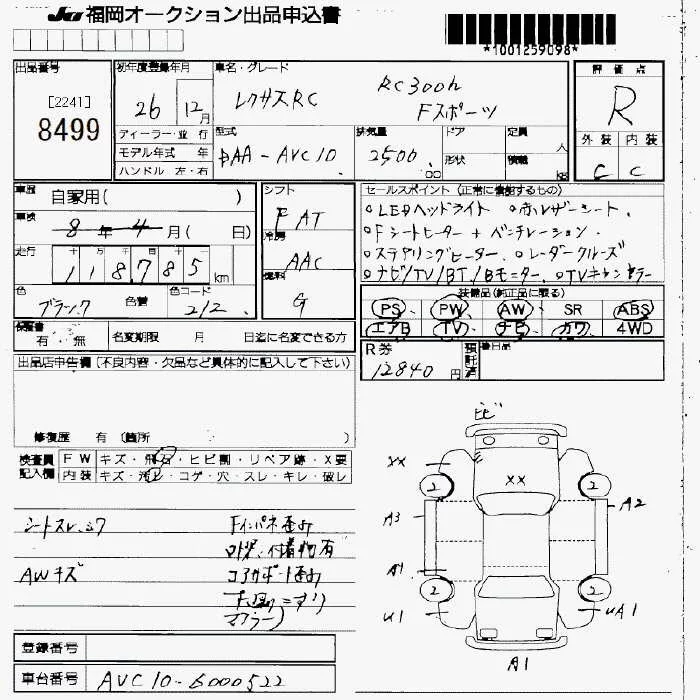 JU 福岡オークション出品申込書
*1001259098*
出品番号 [2241] 8499
初年度登録年月 26 12月
車名・グレード レクサスRC RC300h Fスポーツ
評価点 R
外装 C 内装 C
ディーラー・並行
モデル年式 年
ハンドル 左・右
型式 DAA-AVC10.
排気量 2500. 00
ドア
形状
定員 人
積載 kg
車歴 自家用( )
車検 8年4月(日)
走行 118,785 km
色 ブラック 色替 色コード 212.
保証書 有・無 名変期限 月 日迄に名変できる方
シフト F AT
冷房 AAC
燃料 G
セールスポイント (正常に機能するもの)
○LEDヘッドライト ○赤レザーシート.
○Fシートヒーター+ベンチレーション.
○ステアリングヒーター. ○レーダークルーズ
○ナビ/TV/BT/Bモニター. ○TVキャンセラー
装備品(純正品に限る)
PS PW AW SR ABS
エアB TV ナビ カワ 4WD
R券 12840円
預託済
後日品
出品店申告欄(不良内容・欠品など具体的に記入して下さい)
修復歴 有 (箇所 )
検査員記入欄
FW キズ・飛石・ヒビ割・リペア跡・X要
内装 キズ・汚レ・コゲ・穴・スレ・キレ・破レ
シートスレ.シワ
Fインパネ歪み
AWキズ
コアサポート歪み
マフラー)
登録番号
車台番号 AVC10-6000522
ヒビ
XX
XX
2
2
A3
A2
A1
2
2
U1
UA1
A1